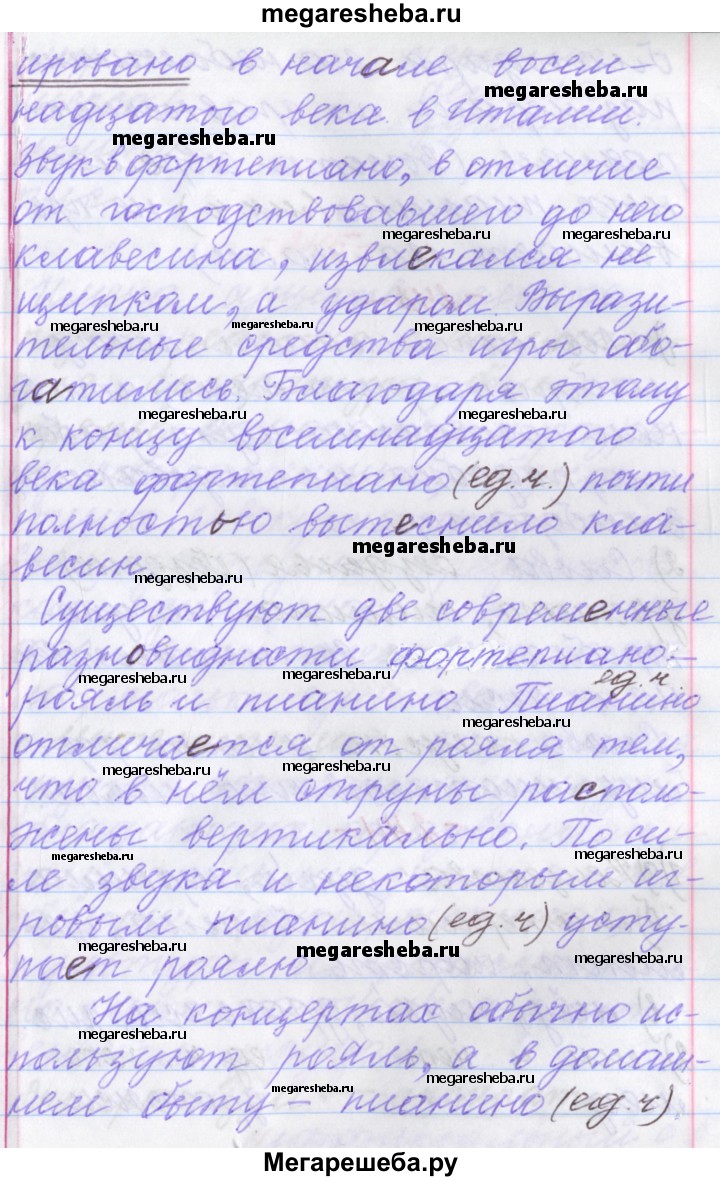 megaresheba.ru
ировано в начале восем-
megaresheba.ru
надцатого века в Италии.
megaresheba.ru
Звук в фортепиано, в отличие
от господствовавшего до него
megaresheba.ru megaresheba.ru
клавесина, извлекался не
щипком, а ударом. Вырази-
megaresheba.ru megaresheba.ru megaresheba.ru
тельные средства игры обо-
гатились. Благодаря этому
megaresheba.ru megaresheba.ru
к концу восемнадцатого
века фортепиано (ед.ч.) почти
полностью вытеснило кла-
megaresheba.ru
весин.
megaresheba.ru
Существуют две современные
разновидности фортепиано:-
megaresheba.ru megaresheba.ru ед.ч.
рояль и пианино. Пианино
megaresheba.ru
отличается от рояля тем,
megaresheba.ru megaresheba.ru
что в нём струны располо-
жены вертикально. По си-
megaresheba.ru megaresheba.ru
ле звука и некоторым иг-
ровым пианино (ед.ч) усту-
megaresheba.ru megaresheba.ru megaresheba.ru
пает роялю
На концертах обычно ис-
megaresheba.ru
пользуют рояль, а в домаш-
megaresheba.ru megaresheba.ru
нем быту – пианино (ед.ч).
Мегарешеба.ру